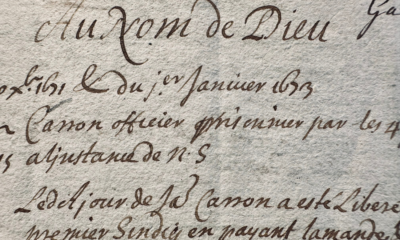 Au Nom de Dieu
Ga
du j.er Janvier 1673
Canon officier prisonnier par les 4
a l'justance de N. S
Ledit jour de Ja.r Canon a esté Liberé
premier Sindiq en payant lamande